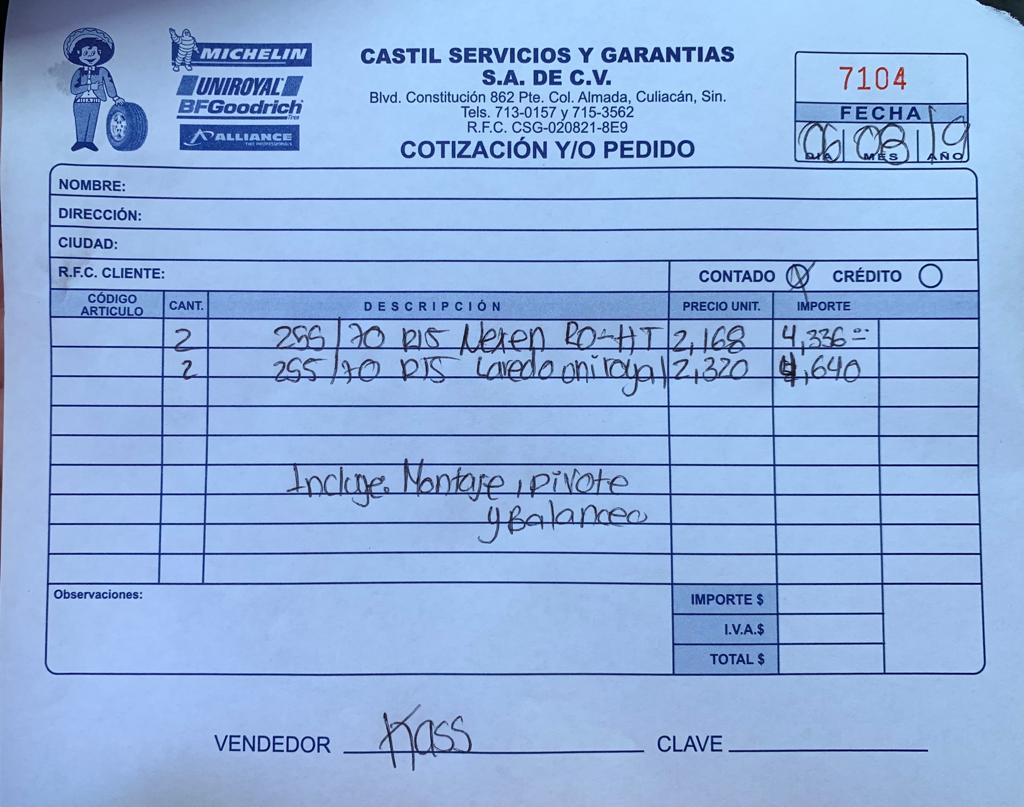 MICHELIN
UNIROYAL
BFGoodrich
Tires
ALLIANCE
TIRE PROFESSIONALS
CASTIL SERVICIOS Y GARANTIAS
S.A. DE C.V.
Blvd. Constitución 862 Pte. Col. Almada, Culiacán, Sin.
Tels. 713-0157 y 715-3562
R.F.C. CSG-020821-8E9
COTIZACIÓN Y/O PEDIDO
7104
FECHA
06 08 19
DIA MES AÑO
NOMBRE:
DIRECCIÓN:
CIUDAD:
R.F.C. CLIENTE: CONTADO CRÉDITO
CÓDIGO ARTICULO CANT. DESCRIPCIÓN PRECIO UNIT. IMPORTE
2 255/70 R15 Nexen RO-HT 2,168 4,336
2 255/70 R15 Laredo oniroyal 2,320 4,640
Incluye. Montaje, pivote
y Balanceo
Observaciones:
IMPORTE $
I.V.A.$
TOTAL $
VENDEDOR Kass CLAVE